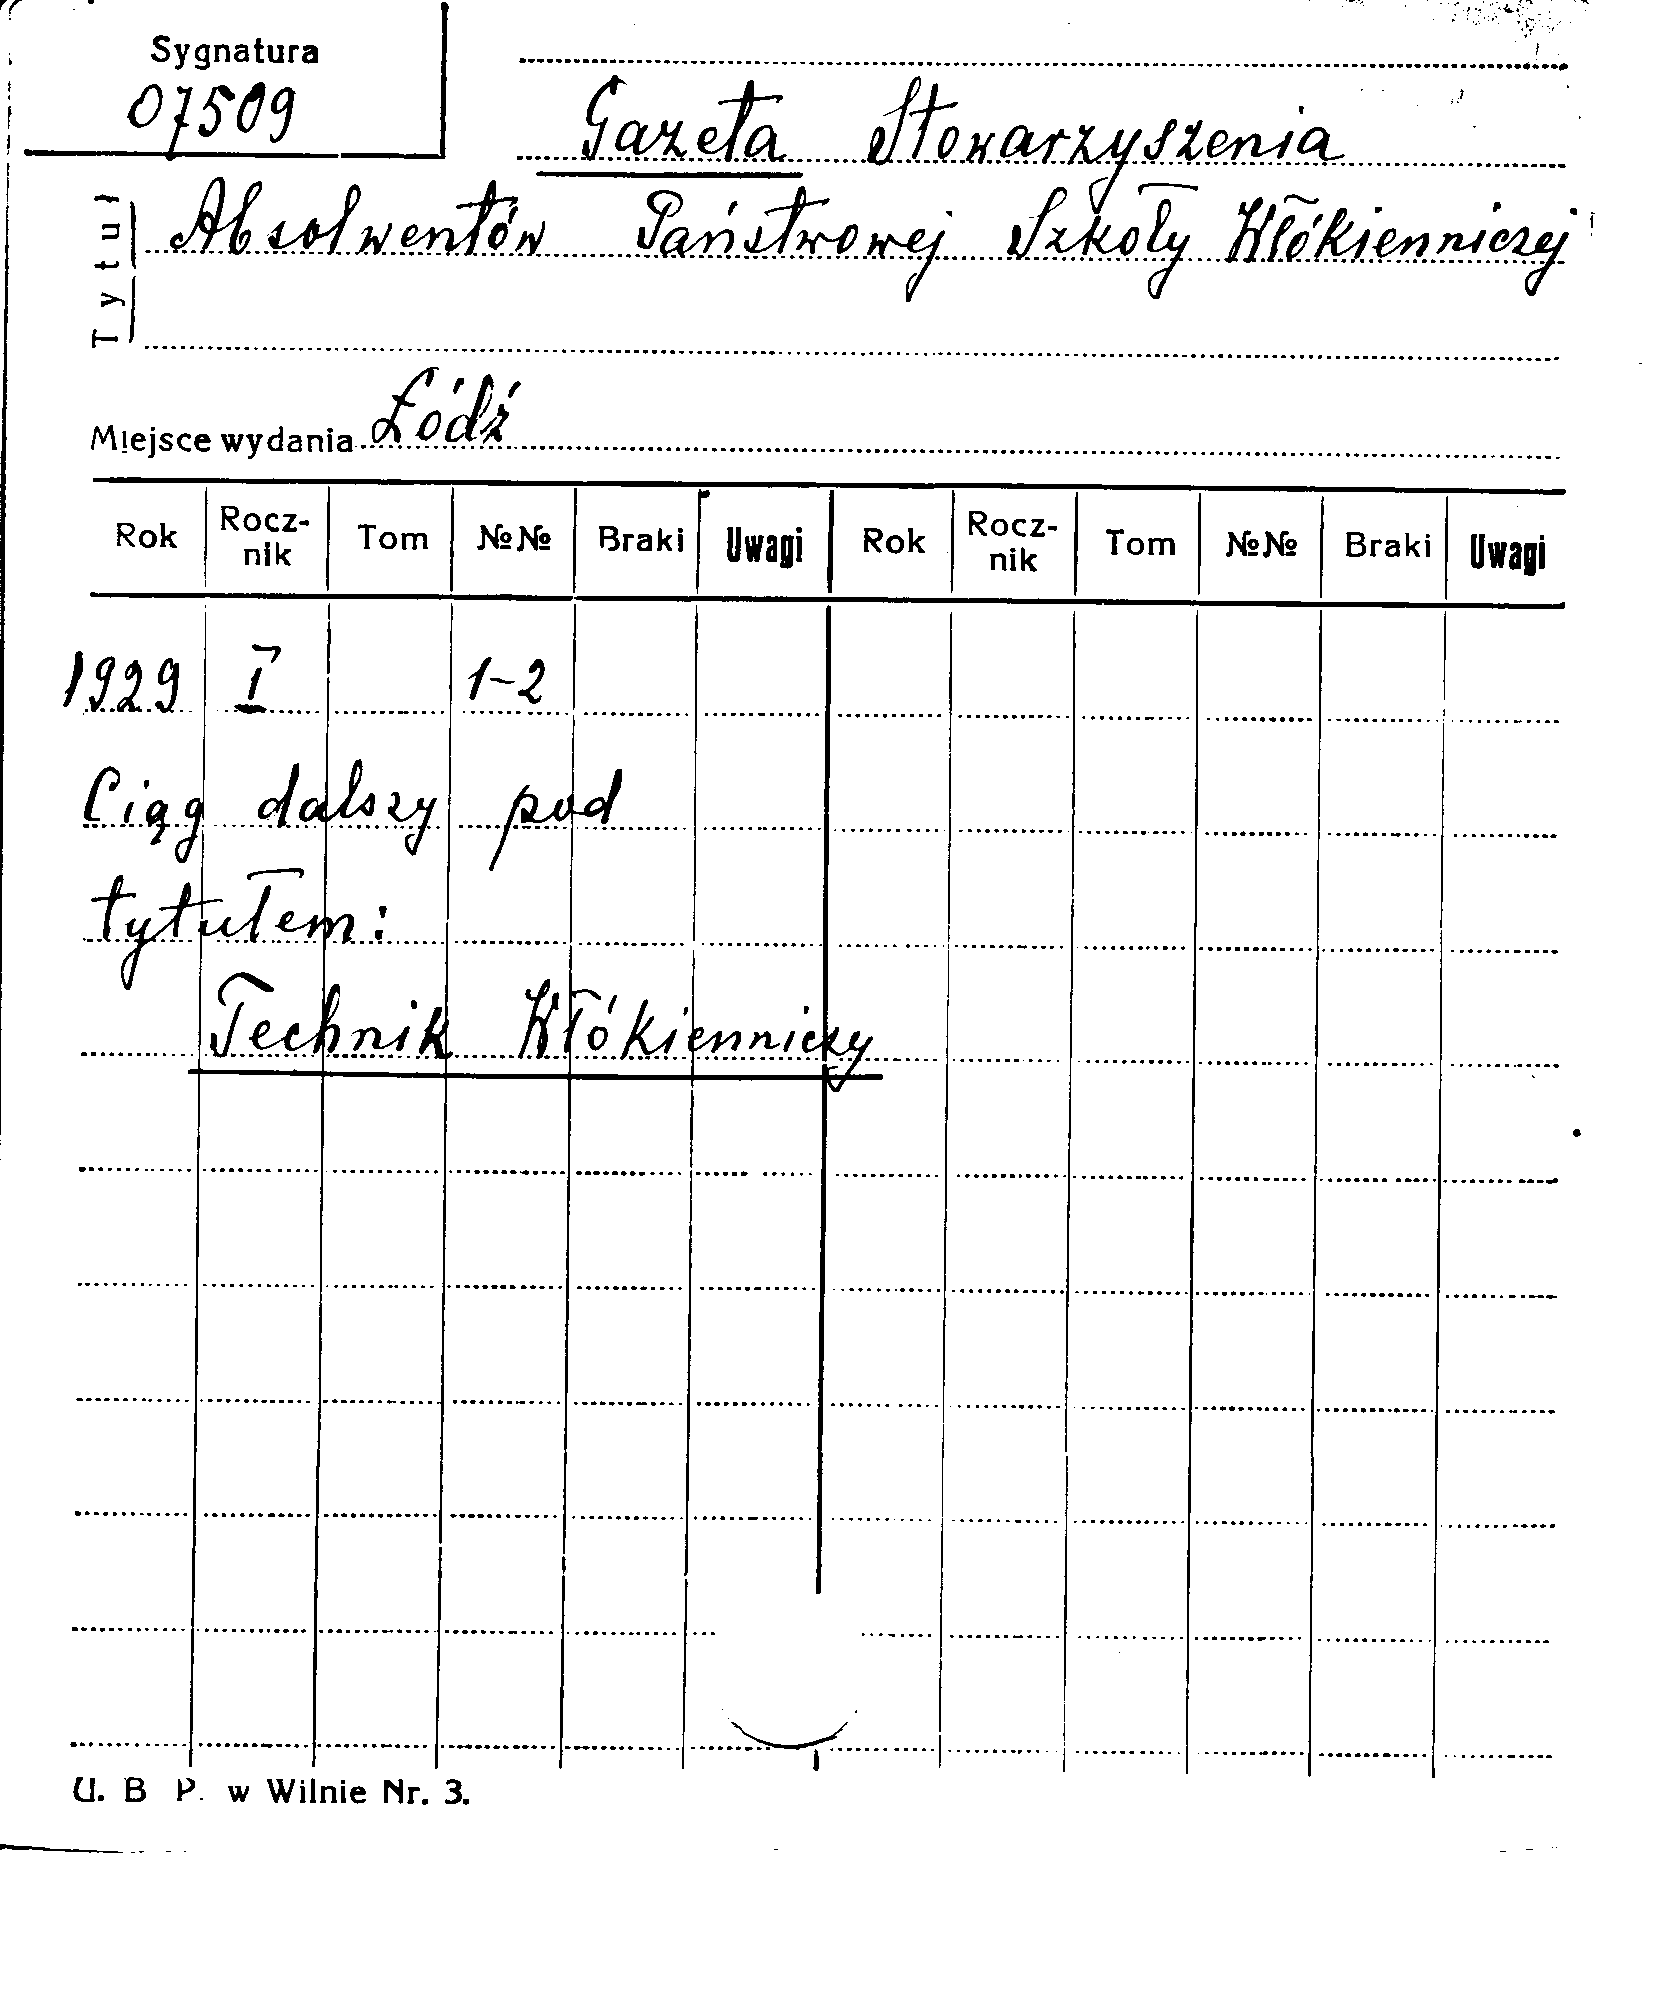 Sygnatura
07509
Gazeta Stowarzyszenia
Tytuł Absolwentów Państwowej Szkoły Włókienniczej
Miejsce wydania Łódź
Rok Rocz-nik Tom №№ Braki Uwagi Rok Rocz-nik Tom №№ Braki Uwagi
1929 I 1-2
Ciąg dalszy pod
tytułem:
Technik Włókienniczy
U. B P. w Wilnie Nr. 3.